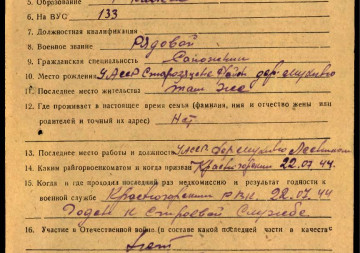 5. Образование
6. На ВУС 133
7. Должностная квалификация
8. Военное звание Рядовой
9. Гражданская специальность
10. Место рождения дер.
11. Последнее место жительства там же
12. Где проживает в настоящее время семья (фамилия, имя и отчество жены или
родителей и точный их адрес) Нет
13. Последнее место работы и должность
14. Каким райгорвоенкоматом и когда призван 22.07.44.
15. Когда и где проходил последний раз медкомиссию и результат годности к
военной службе Красногорским РВК 22.07.44
Годен к строевой службе
16. Участие в Отечественной войне (в составе какой последней части в качестве